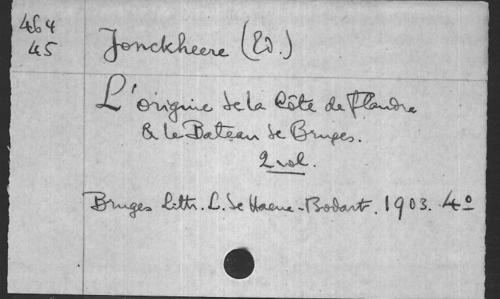 464
45
Jonckheere (Ed.)
L'origine de la Côte de Flandre
& le Bateau de Bruges.
2 vol.
Bruges Lith. L. de Haene-Bodart. 1903. 4º